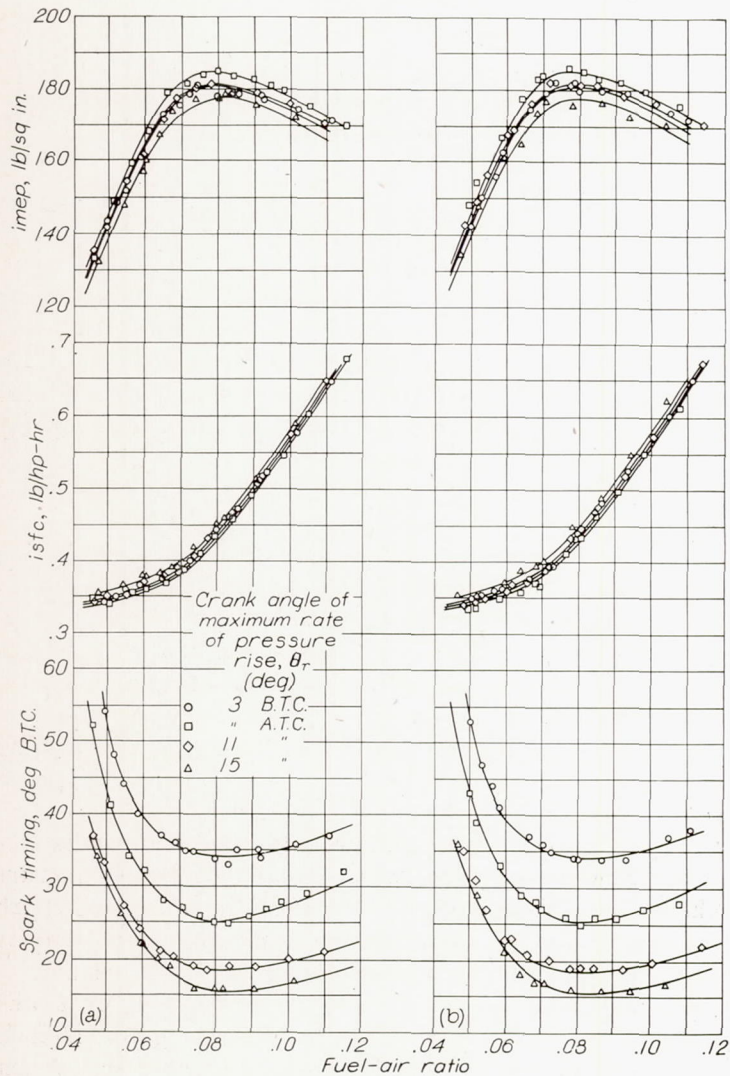 200
180
160
140
120
imep, lb/sq in.
.7
.6
.5
.4
.3
isfc, lb/hp-hr
Crank angle of
maximum rate
of pressure
rise, θr
(deg)
○ 3 B.T.C.
□ " A.T.C.
◇ 11 "
△ 15 "
60
50
40
30
20
10
Spark timing, deg B.T.C.
(a)
(b)
.04 .06 .08 .10 .12 .04 .06 .08 .10 .12
Fuel-air ratio